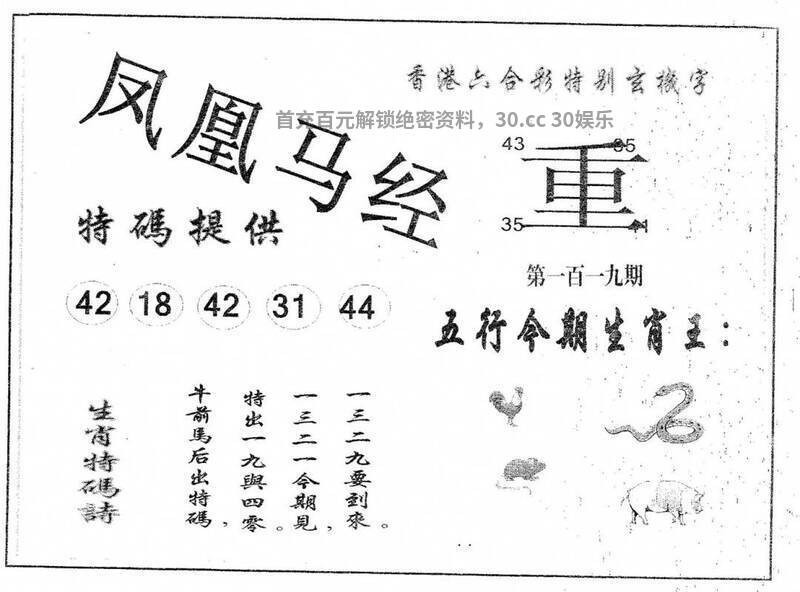 凤凰马经
香港六合彩特别玄機字
首充百元解锁绝密资料，30.cc 30娱乐
43 35
重
35 41
特碼提供
第一百一九期
42 18 42 31 44
五行今期生肖王：
生肖特碼詩
牛前馬后出特碼，
特出一九與四零。
一三二一今期見，
一三二九要到來。